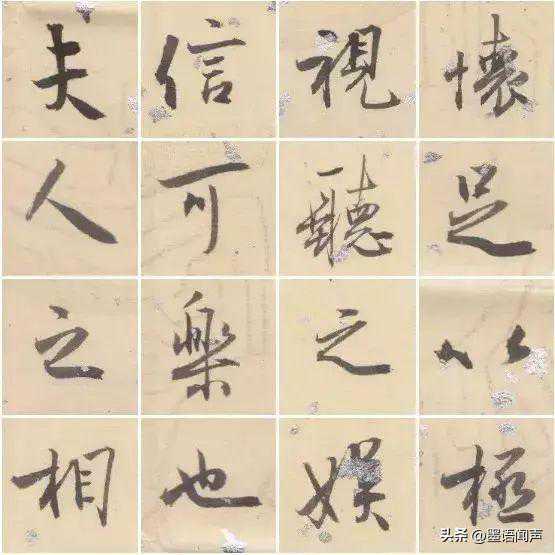 懷足以極
視聽之娛
信可樂也
夫人之相
头条 @墨语闻声